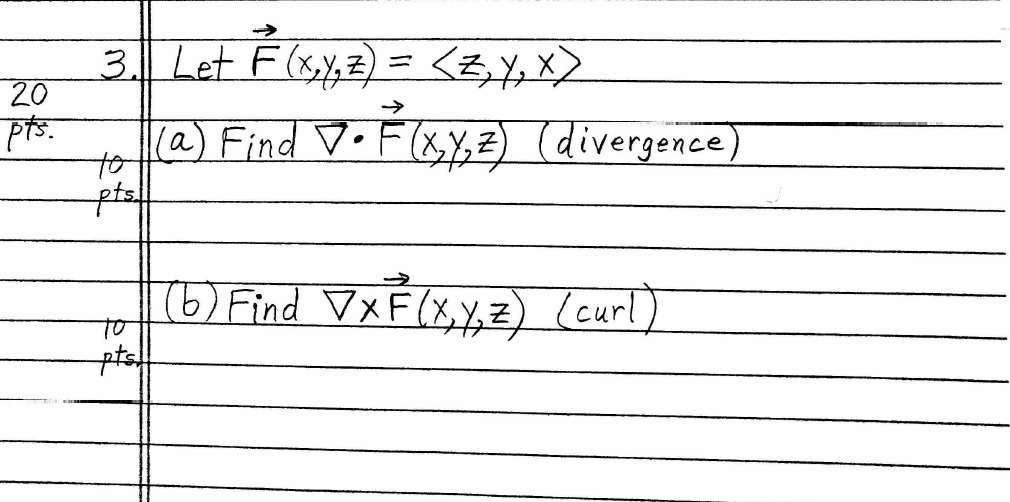 3. Let F⃗(x,y,z) = <z, y, x>
20
pts.
(a) Find ∇·F⃗(x,y,z) (divergence)
10
pts.
(b) Find ∇×F⃗(x,y,z) (curl)
10
pts.